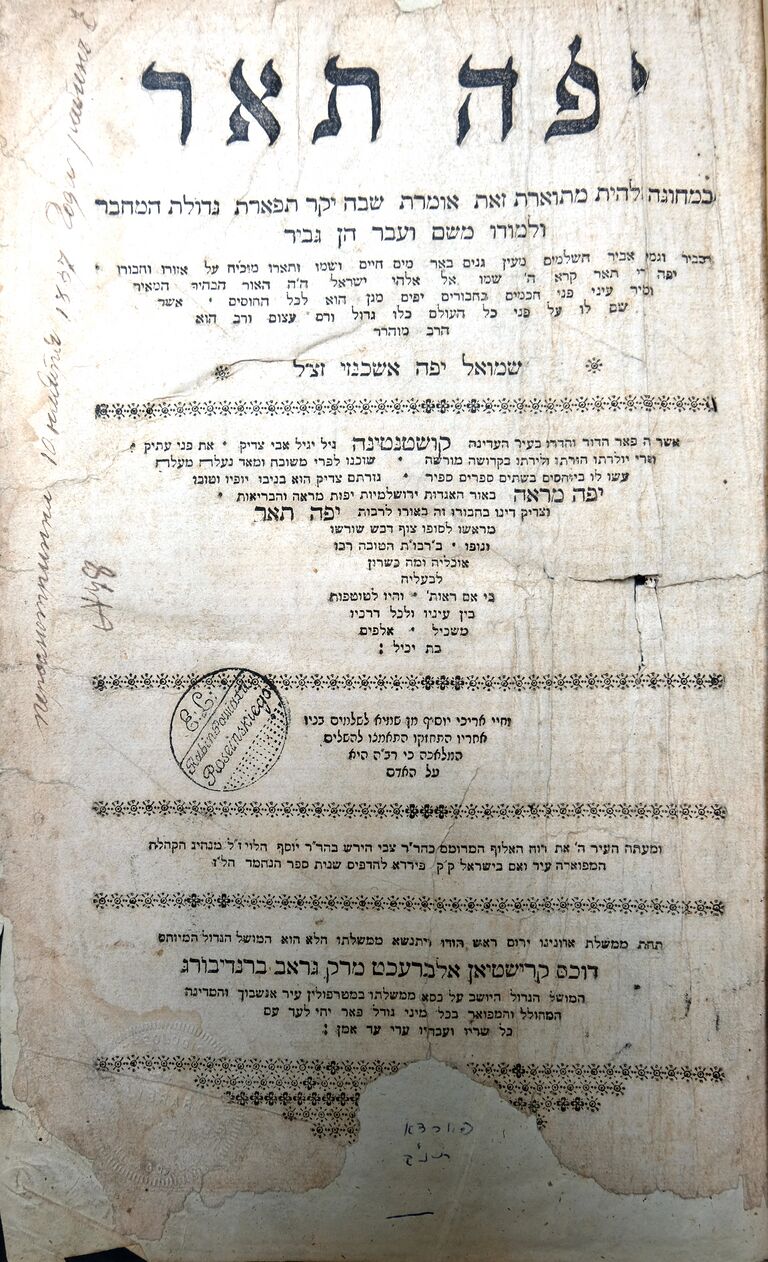 יפה תאר
במחוגה להית מתוארת זאת אומרת שבה יקר תפארת גדולת המחבר
ולמודו משם ועבר הן גביר
וגמי אביר תשלמים מעין גנים באר מים חיים ושמו ותארו מוכיח על אזורו וחבורו •
יפה רי תאר קרא ה' שמו אל אלהי ישראל ה"ה האור הבהיר המאיר
עיני פני חכמים בחבורים יפים מגן הוא לכל החוסים • אשר
שם לו על פני כל העולם כלו גדול ורם עצום ורב הוא
הרב מוהרר
שמואל יפה אשכנזי זצ"ל
אשר ה פאר הדור והדרו בעיר העדינה קושטנטינה גיל יגיל אבי צדיק • את פני עתיק •
יולדתו הורתו ולידתו בקדושה מורשה • שוכנו לפרי משובת ומאד נעלה מעלה
עשו לו בשתים ספרים ספיר • גזרתם צדיק הוא בניבו יופיו וטובו
יפה מראה באור האגדות ירושלמיות יפות מראה והבריאות •
וצדיק דינו בחבורו זה באורו לרבות יפה תאר
מראשו לסופו צוף דבש שורשו
ונופו • ב"רבו"ת הטובה רבו
אוכליה ומה כשרון
לבעליה
כי אם ראות' • והיו לטוטפות
בין עיניו ולכל דרכיו
משכיל • אלפים
בת יכול :
וחיי אריכי יוסיף מן שמיא לשלמים בניו
אחריו התחזקו התאמנו להשלים
המלאכה כי רב"ה היא
על האדם
ומעתה העיר ה' את רוח האלוף המרומם כהר"ר צבי הירש בהר"ר יוסף הלוי ז"ל מנהיג הקהלת
המפוארה עיר ואם בישראל ק"ק פירדא להדפיס שנית ספר הנחמד הל"ז
תחת ממשלת אדונינו ירום ראש הודו ויתנשא ממשלתו הלא הוא המושל הגדול המיוחס
דוכס קרישטיאן אלברעכט מרק גראב ברנדיבורג
המושל הגדול היושב על כסא ממשלתו במטרפולין עיר אנשבוך והמדינה
המהולל והמפואר בכל מיני גודל פאר יחי לעד עם
כל שריו ועבדיו עדי עד אמן :
E. L.
Rabin Powiatu
Roseinskiego
10 1837 Года раввинъ
№48
פיורדא